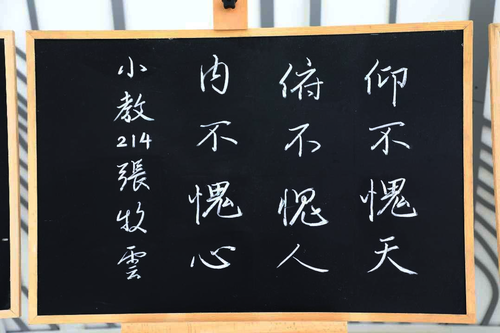 仰不愧天
俯不愧人
內不愧心
小教214張牧雲